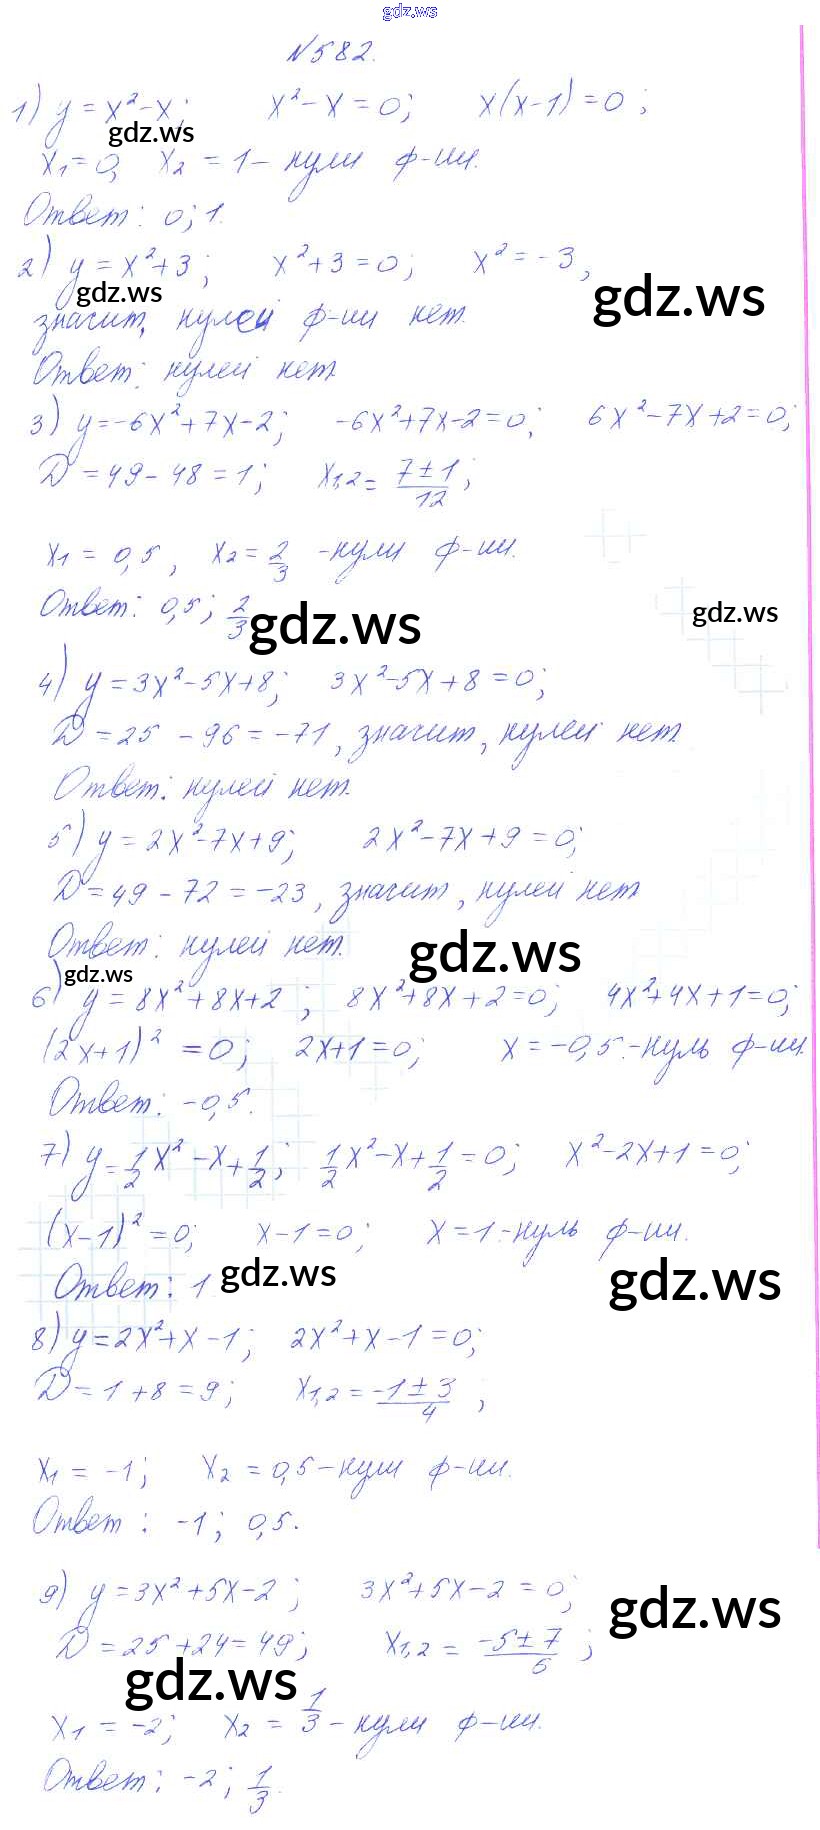 gdz.ws
№582.
1) y = x² - x;   x² - x = 0;   x(x-1) = 0;
gdz.ws
x₁ = 0,   x₂ = 1 - нули ф-ии.
Ответ: 0; 1.
2) y = x² + 3;   x² + 3 = 0;   x² = -3,
gdz.ws   gdz.ws
значит, нулей ф-ии нет.
Ответ: нулей нет.
3) y = -6x² + 7x - 2;   -6x² + 7x - 2 = 0;   6x² - 7x + 2 = 0;
D = 49 - 48 = 1;   x₁,₂ = (7 ± 1)/12;
x₁ = 0,5,   x₂ = 2/3 - нули ф-ии.
Ответ: 0,5; 2/3
gdz.ws   gdz.ws
4) y = 3x² - 5x + 8;   3x² - 5x + 8 = 0;
D = 25 - 96 = -71, значит, нулей нет.
Ответ: нулей нет.
5) y = 2x² - 7x + 9;   2x² - 7x + 9 = 0;
D = 49 - 72 = -23, значит, нулей нет
Ответ: нулей нет.
gdz.ws   gdz.ws
6) y = 8x² + 8x + 2;   8x² + 8x + 2 = 0;   4x² + 4x + 1 = 0;
(2x+1)² = 0;   2x+1 = 0;   x = -0,5. - нуль ф-ии.
Ответ: -0,5.
7) y = 1/2 x² - x + 1/2;   1/2 x² - x + 1/2 = 0;   x² - 2x + 1 = 0;
(x-1)² = 0;   x - 1 = 0;   x = 1. - нуль ф-ии.
Ответ: 1.
gdz.ws   gdz.ws
8) y = 2x² + x - 1;   2x² + x - 1 = 0;
D = 1 + 8 = 9;   x₁,₂ = (-1 ± 3)/4;
x₁ = -1;   x₂ = 0,5 - нули ф-ии.
Ответ: -1; 0,5.
9) y = 3x² + 5x - 2;   3x² + 5x - 2 = 0;
gdz.ws
D = 25 + 24 = 49;   x₁,₂ = (-5 ± 7)/6;
gdz.ws
x₁ = -2;   x₂ = 1/3 - нули ф-ии.
Ответ: -2; 1/3.